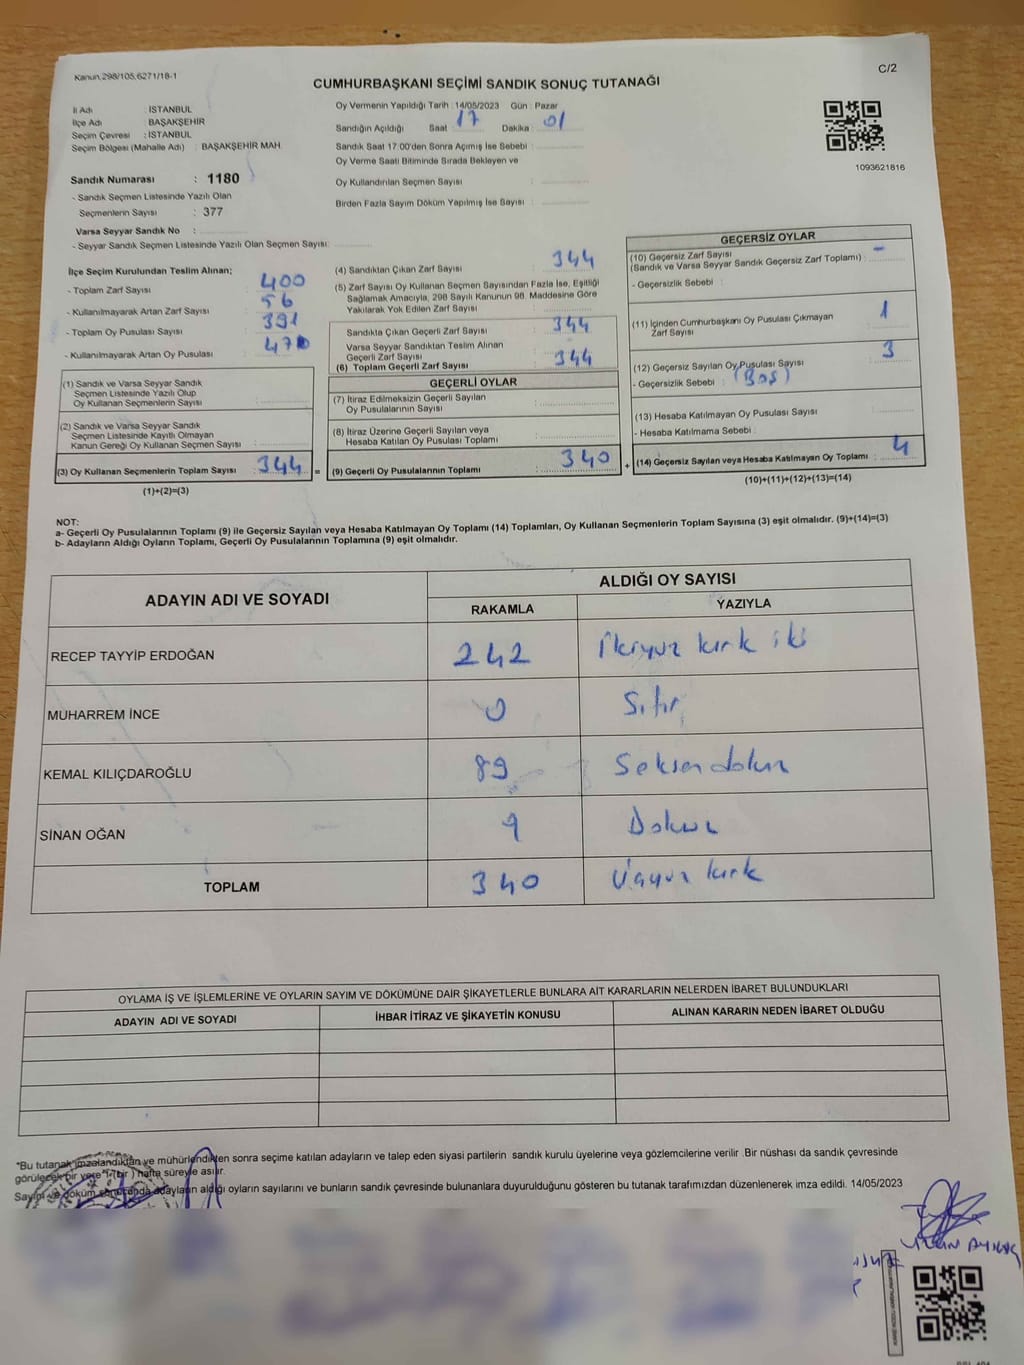 Kanun.298/105,6271/18-1
C/2
CUMHURBAŞKANI SEÇİMİ SANDIK SONUÇ TUTANAĞI
İl Adı : İSTANBUL
İlçe Adı : BAŞAKŞEHİR
Seçim Çevresi : İSTANBUL
Seçim Bölgesi (Mahalle Adı) : BAŞAKŞEHİR MAH
Sandık Numarası : 1180
- Sandık Seçmen Listesinde Yazılı Olan
Seçmenlerin Sayısı : 377
Varsa Seyyar Sandık No :
- Seyyar Sandık Seçmen Listesinde Yazılı Olan Seçmen Sayısı:
Oy Vermenin Yapıldığı Tarih : 14/05/2023 Gün : Pazar
Sandığın Açıldığı Saat 17 Dakika : 01
Sandık Saat 17:00'den Sonra Açımış İse Sebebi :
Oy Verme Saati Bitiminde Sırada Bekleyen ve
Oy Kullandırılan Seçmen Sayısı :
Birden Fazla Sayım Döküm Yapılmış İse Sayısı :
1093621816
İlçe Seçim Kurulundan Teslim Alınan;
- Toplam Zarf Sayısı : 400
- Kullanılmayarak Artan Zarf Sayısı : 56
- Toplam Oy Pusulası Sayısı : 391
- Kullanılmayarak Artan Oy Pusulası : 47
(1) Sandık ve Varsa Seyyar Sandık
Seçmen Listesinde Yazılı Olup
Oy Kullanan Seçmenlerin Sayısı :
(2) Sandık ve Varsa Seyyar Sandık
Seçmen Listesinde Kayıtlı Olmayan
Kanun Gereği Oy Kullanan Seçmen Sayısı :
(3) Oy Kullanan Seçmenlerin Toplam Sayısı : 344 =
(1)+(2)=(3)
(4) Sandıktan Çıkan Zarf Sayısı : 344
(5) Zarf Sayısı Oy Kullanan Seçmen Sayısından Fazla İse, Eşitliği
Sağlamak Amacıyla, 298 Sayılı Kanunun 98. Maddesine Göre
Yakılarak Yok Edilen Zarf Sayısı :
Sandıkta Çıkan Geçerli Zarf Sayısı : 344
Varsa Seyyar Sandıktan Teslim Alınan
Geçerli Zarf Sayısı :
(6) Toplam Geçerli Zarf Sayısı : 344
GEÇERLİ OYLAR
(7) İtiraz Edilmeksizin Geçerli Sayılan
Oy Pusulalarının Sayısı :
(8) İtiraz Üzerine Geçerli Sayılan veya
Hesaba Katılan Oy Pusulası Toplamı :
(9) Geçerli Oy Pusulalarının Toplamı : 340 +
GEÇERSİZ OYLAR
(10) Geçersiz Zarf Sayısı -
(Sandık ve Varsa Seyyar Sandık Geçersiz Zarf Toplamı) :
- Geçersizlik Sebebi :
(11) İçinden Cumhurbaşkanı Oy Pusulası Çıkmayan
Zarf Sayısı : 1
(12) Geçersiz Sayılan Oy Pusulası Sayısı : 3
- Geçersizlik Sebebi : (Boş)
(13) Hesaba Katılmayan Oy Pusulası Sayısı :
- Hesaba Katılmama Sebebi :
(14) Geçersiz Sayılan veya Hesaba Katılmayan Oy Toplamı : 4
(10)+(11)+(12)+(13)=(14)
NOT:
a- Geçerli Oy Pusulalarının Toplamı (9) ile Geçersiz Sayılan veya Hesaba Katılmayan Oy Toplamı (14) Toplamları, Oy Kullanan Seçmenlerin Toplam Sayısına (3) eşit olmalıdır. (9)+(14)=(3)
b- Adayların Aldığı Oyların Toplamı, Geçerli Oy Pusulalarının Toplamına (9) eşit olmalıdır.
ADAYIN ADI VE SOYADI ALDIĞI OY SAYISI
RAKAMLA YAZIYLA
RECEP TAYYİP ERDOĞAN 242 İkiyüz kırk iki
MUHARREM İNCE 0 Sıfır
KEMAL KILIÇDAROĞLU 89 Seksen dokuz
SİNAN OĞAN 9 Dokuz
TOPLAM 340 Üçyüz kırk
OYLAMA İŞ VE İŞLEMLERİNE VE OYLARIN SAYIM VE DÖKÜMÜNE DAİR ŞİKAYETLERLE BUNLARA AİT KARARLARIN NELERDEN İBARET BULUNDUKLARI
ADAYIN ADI VE SOYADI İHBAR İTİRAZ VE ŞİKAYETİN KONUSU ALINAN KARARIN NEDEN İBARET OLDUĞU
*Bu tutanak imzalandıktan ve mühürlendikten sonra seçime katılan adayların ve talep eden siyasi partilerin sandık kurulu üyelerine veya gözlemcilerine verilir .Bir nüshası da sandık çevresinde
görülecek bir yere 1 (bir ) hafta süreyle asılır.
Sayım ve döküm sonucunda adayların aldığı oyların sayılarını ve bunların sandık çevresinde bulunanlara duyurulduğunu gösteren bu tutanak tarafımızdan düzenlenerek imza edildi. 14/05/2023